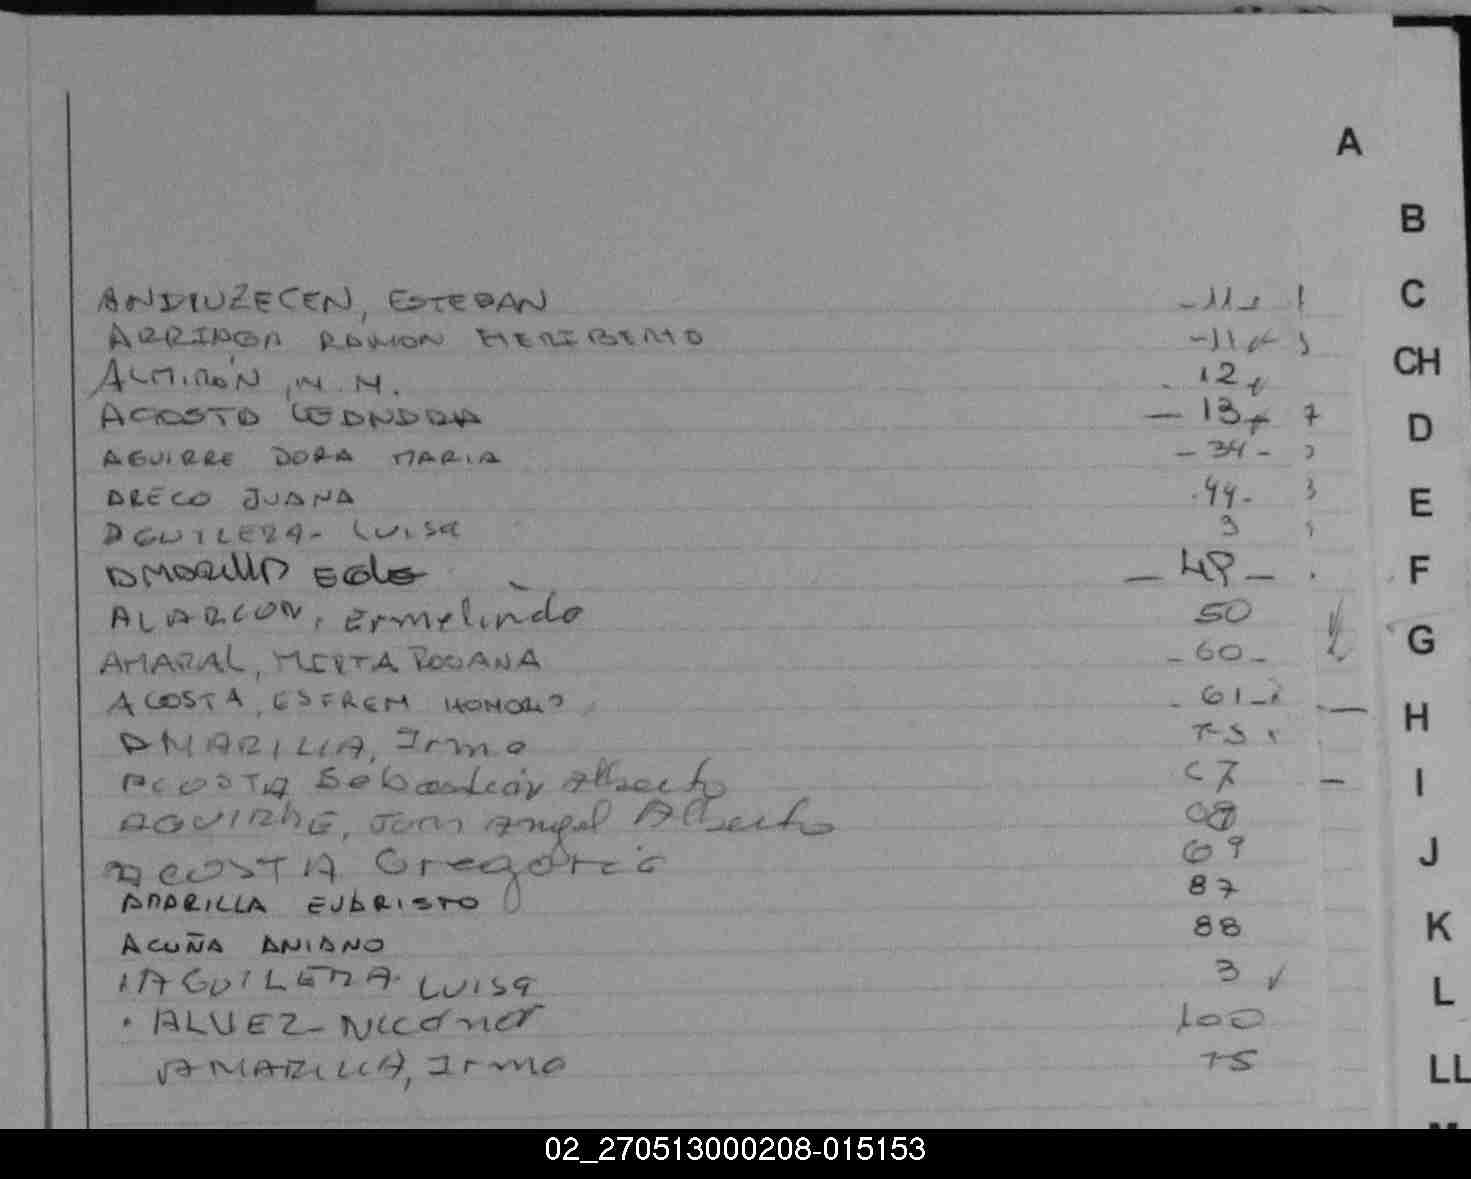 A
B
C
CH
D
E
F
G
H
I
J
K
L
LL
ANDIUZECEN, ESTEBAN -11-
ARRIAGA RAMON HERIBERTO -11
ALMIRÓN, N. N. 12
ACOSTA LEANDRA - 13
AGUIRRE DORA MARIA - 34 -
ARECO JUANA 44-
AGUILERA - LUISA 3
AMARILLA EGLE
ALARCON, Ermelindo 50
AMARAL, MIRTA ROSANA - 60 -
ACOSTA, ESFREM HONORIO - 61 -
AMARILLA, Irma
ACOSTA Sebastián Alberto
AGUIRRE, Juan Angel Alberto
ACOSTA Gregorio 69
AMARILLA EVARISTO 87
ACUÑA ANIANO 88
AGUILERA LUISA 3
ALVEZ - Nicanor 100
AMARILLA, Irma
02_270513000208-015153